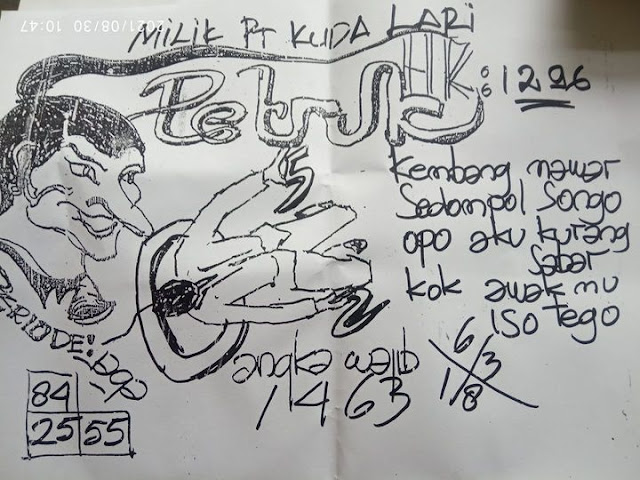 2021/08/30 10:47
MILIK PT KUDA LARI
Petruk
HK: 1296
Kembang mawar
Sedompol Songo
opo aku kurang
Sabar
kok awak mu
ISO Tego
5
2
PERIODE:
angka wajib
1463
6/3
1/8
84
25 55